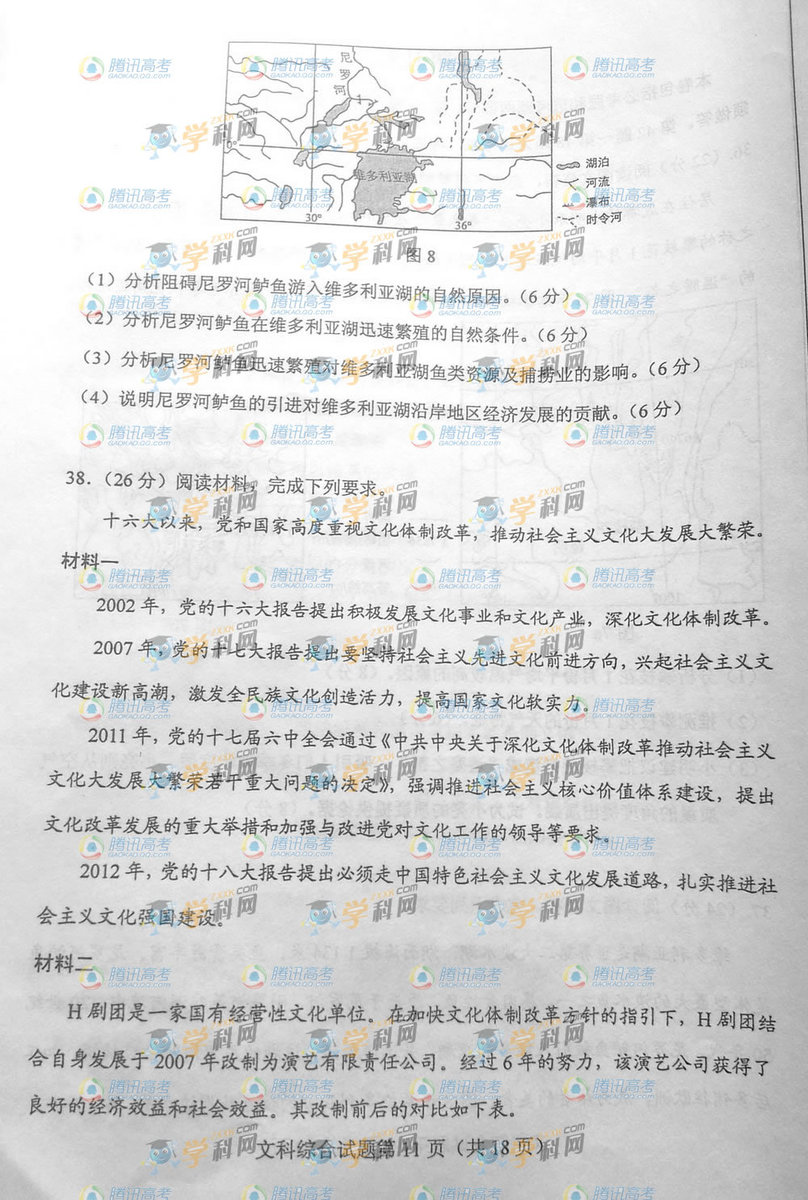 尼罗河
0°
维多利亚湖
30°
36°
湖泊
河流
瀑布
时令河
图 8
（1）分析阻碍尼罗河鲈鱼游入维多利亚湖的自然原因。（6 分）
（2）分析尼罗河鲈鱼在维多利亚湖迅速繁殖的自然条件。（6 分）
（3）分析尼罗河鲈鱼迅速繁殖对维多利亚湖鱼类资源及捕捞业的影响。（6 分）
（4）说明尼罗河鲈鱼的引进对维多利亚湖沿岸地区经济发展的贡献。（6 分）
38．（26 分）阅读材料，完成下列要求。
十六大以来，党和国家高度重视文化体制改革，推动社会主义文化大发展大繁荣。
材料一
2002 年，党的十六大报告提出积极发展文化事业和文化产业，深化文化体制改革。
2007 年，党的十七大报告提出要坚持社会主义先进文化前进方向，兴起社会主义文
化建设新高潮，激发全民族文化创造活力，提高国家文化软实力。
2011 年，党的十七届六中全会通过《中共中央关于深化文化体制改革推动社会主义
文化大发展大繁荣若干重大问题的决定》，强调推进社会主义核心价值体系建设，提出
文化改革发展的重大举措和加强与改进党对文化工作的领导等要求。
2012 年，党的十八大报告提出必须走中国特色社会主义文化发展道路，扎实推进社
会主义文化强国建设。
材料二
H 剧团是一家国有经营性文化单位。在加快文化体制改革方针的指引下，H 剧团结
合自身发展于 2007 年改制为演艺有限责任公司。经过 6 年的努力，该演艺公司获得了
良好的经济效益和社会效益。其改制前后的对比如下表。
文科综合试题第 11 页（共 18 页）
腾讯高考
GAOKAO.QQ.COM
学科网
ZXXK.COM